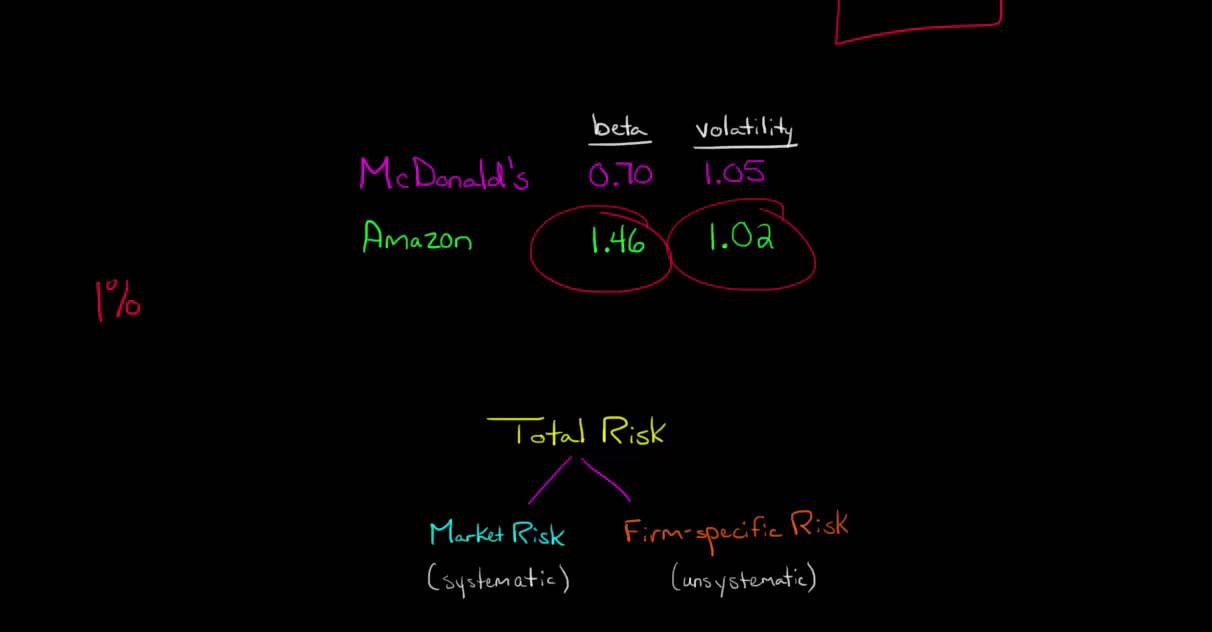 beta volatility
McDonald's 0.70 1.05
Amazon 1.46 1.02
1%
Total Risk
Market Risk Firm-specific Risk
(systematic) (unsystematic)